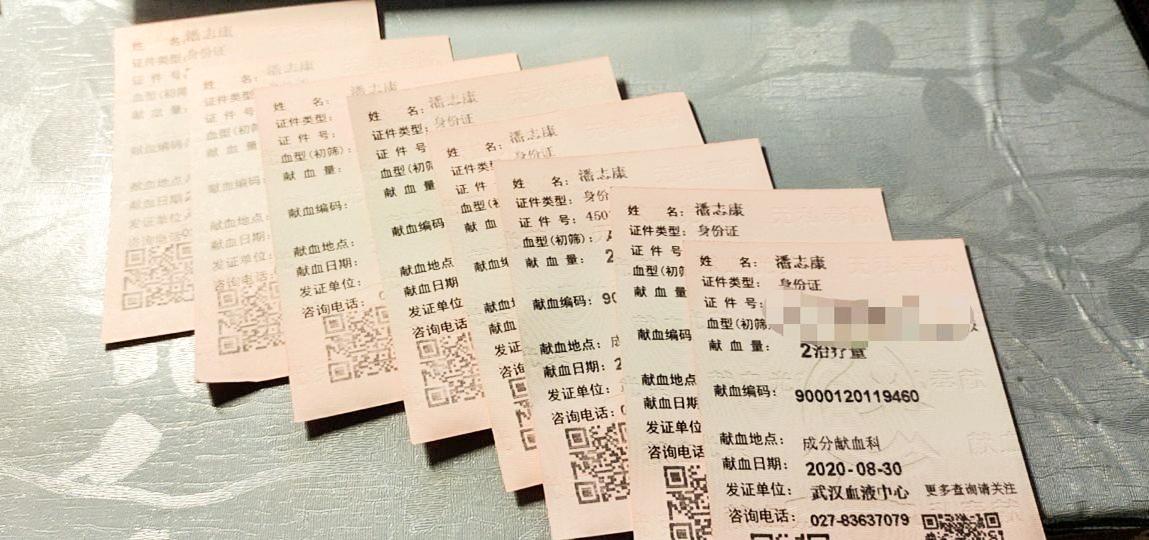 姓 名：潘志康
证件类型：身份证
证 件 号：
血型(初筛
献 血 量：
献血编码：
献血地点：
献血日期：
发证单位：
咨询电话：
姓 名：潘志康
证件类型
证 件 号：
血型(初筛
献 血 量：
献血编码：
献血地点：
献血日期：
发证单位：
咨询电话：
姓 名：潘志康
证件类型：
证 件 号：
血型(初筛)：
献 血 量：
献血编码：
献血地点：
献血日期：
发证单位：
咨询电话：
姓 名：潘志康
证件类型：身份证
证 件 号
血型(初筛
献 血 量
献血编码
献血地点
献血日期
发证单位
咨询电话
姓 名：潘志康
证件类型：身份证
证 件
血型(初
献 血
献血编
献血地
献血
发证
咨询
姓 名：潘志康
证件类型：身份
证 件 号：450
血型(初筛)：
献 血 量：2
献血编码：90
献血地点：成
献血日期：2
发证单位：
咨询电话：0
姓 名：潘志康
证件类型：身份证
证 件 号
血型(初
献 血 量
献血编码
献血地点
献血日期
发证单位
咨询电话
姓 名：潘志康
证件类型：身份证
证 件 号：
血型(初筛
献 血 量：2治疗量
献血编码：9000120119460
献血地点：成分献血科
献血日期：2020-08-30
发证单位：武汉血液中心 更多查询请关注
咨询电话：027-83637079